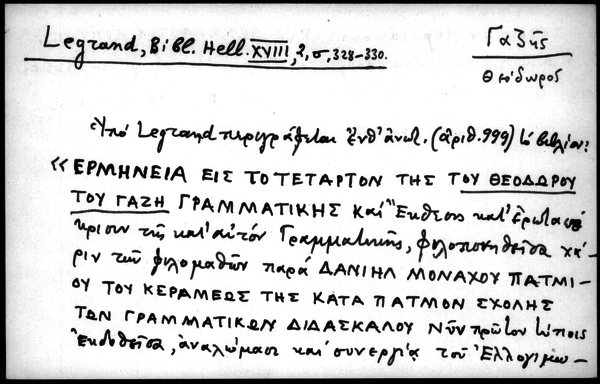 Legrand, Bibl. Hell. XVIII, 2, σ, 328-330.
Γαζῆς
Θεόδωρος
Ὑπὸ Legrand περιγράφεται ἔνθ' ἀνωτ. (ἀριθ. 999) τὸ βιβλίον:
«ΕΡΜΗΝΕΙΑ ΕΙΣ ΤΟ ΤΕΤΑΡΤΟΝ ΤΗΣ ΤΟΥ ΘΕΟΔΩΡΟΥ
ΤΟΥ ΓΑΖΗ ΓΡΑΜΜΑΤΙΚΗΣ καὶ Ἔκθεσις κατ' ἐρωταπό
κρισιν τῆς κατ' αὐτὸν Γραμματικῆς, φιλοπονηθεῖσα χά-
ριν τῶν φιλομαθῶν παρὰ ΔΑΝΙΗΛ ΜΟΝΑΧΟΥ ΠΑΤΜΙ-
ΟΥ ΤΟΥ ΚΕΡΑΜΕΩΣ ΤΗΣ ΚΑΤΑ ΠΑΤΜΟΝ ΣΧΟΛΗΣ
ΤΩΝ ΓΡΑΜΜΑΤΙΚΩΝ ΔΙΔΑΣΚΑΛΟΥ Νῦν πρῶτον τύποις
Ἐκδοθεῖσα, ἀναλώμασι καὶ συνεργίᾳ τοῦ Ἐλλογιμω-